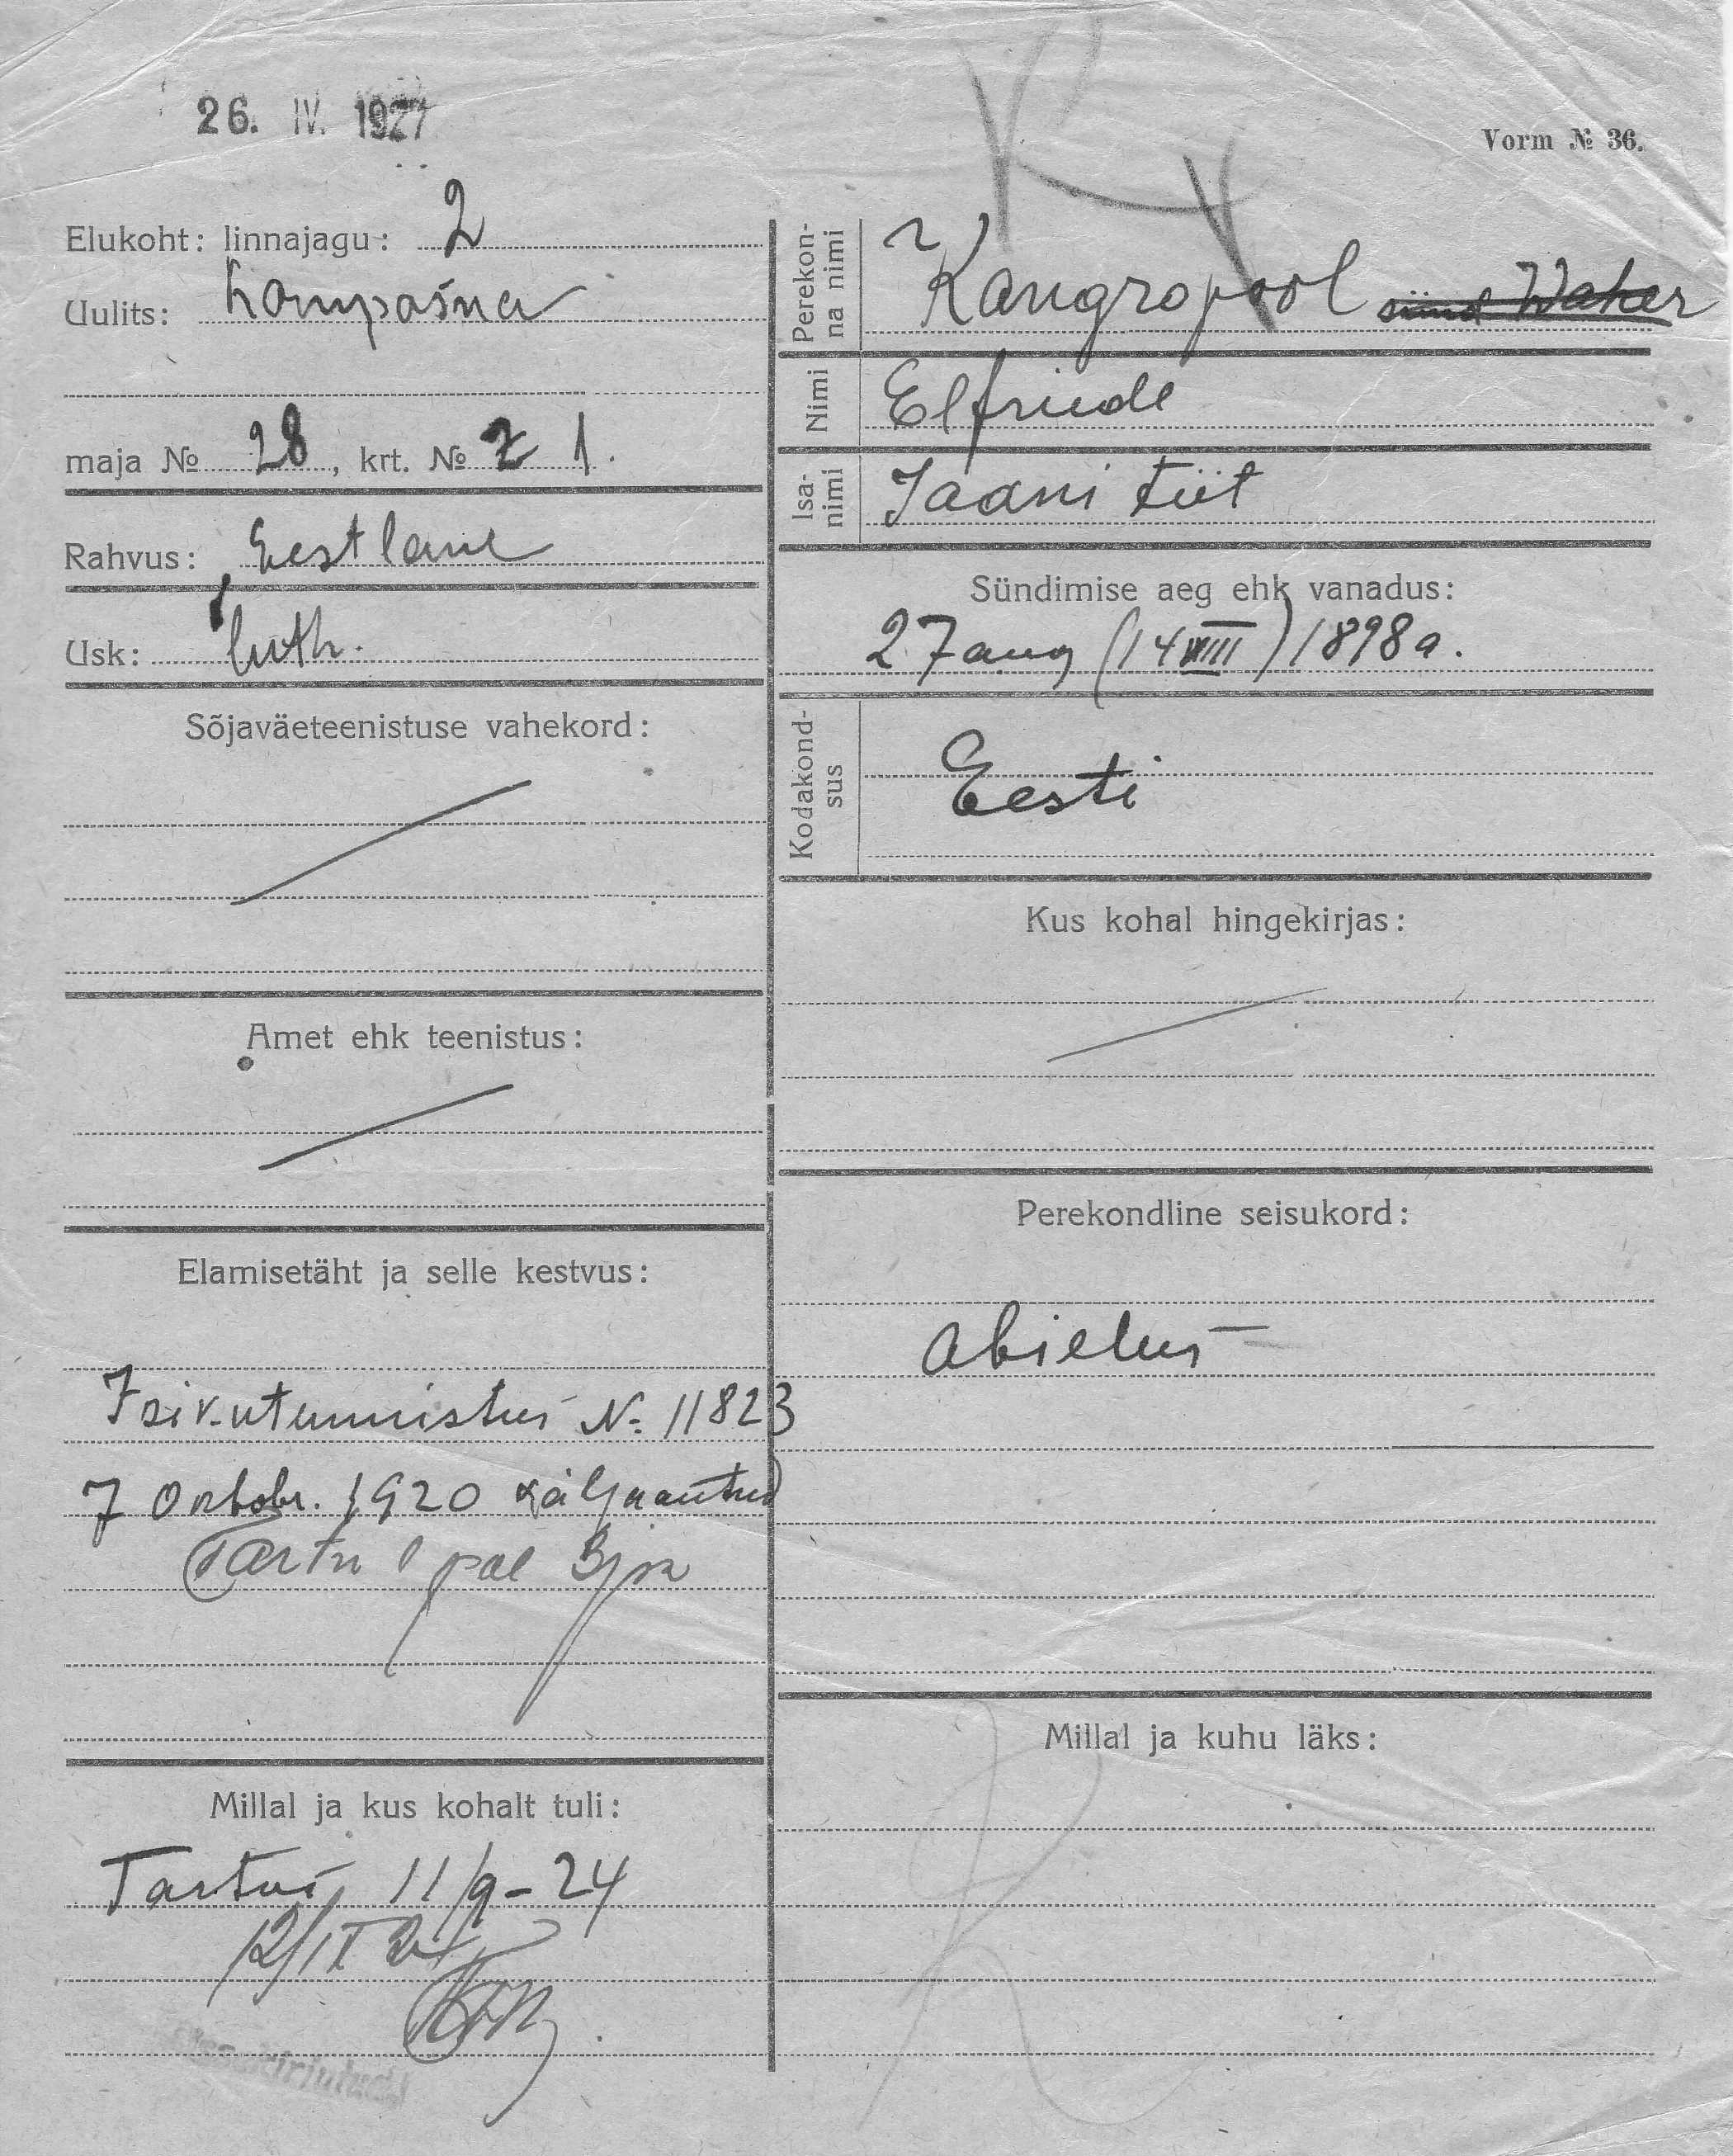 26. IV. 1927
Vorm № 36.
Elukoht: linnajagu: 2
Uulits: Kompasna
maja № 28, krt. № 2 1.
Rahvus: Eestlane
Usk: luth.
Sõjaväeteenistuse vahekord:
Amet ehk teenistus:
Elamisetäht ja selle kestvus:
Isikutunnistus № 11823
7 Oktobr. 1920 väljaantud
Tartu pol
Millal ja kus kohalt tuli:
Tartust 11/9-24
12/IX 24
Sissekirjutud
Perekonna nimi
Kangropool sünd Waher
Nimi Elfriede
Isanimi Jaani tüt
Sündimise aeg ehk vanadus:
27 aug (14 VIII) 1898 a.
Kodakondsus
Eesti
Kus kohal hingekirjas:
Perekondline seisukord:
abielus
Millal ja kuhu läks: